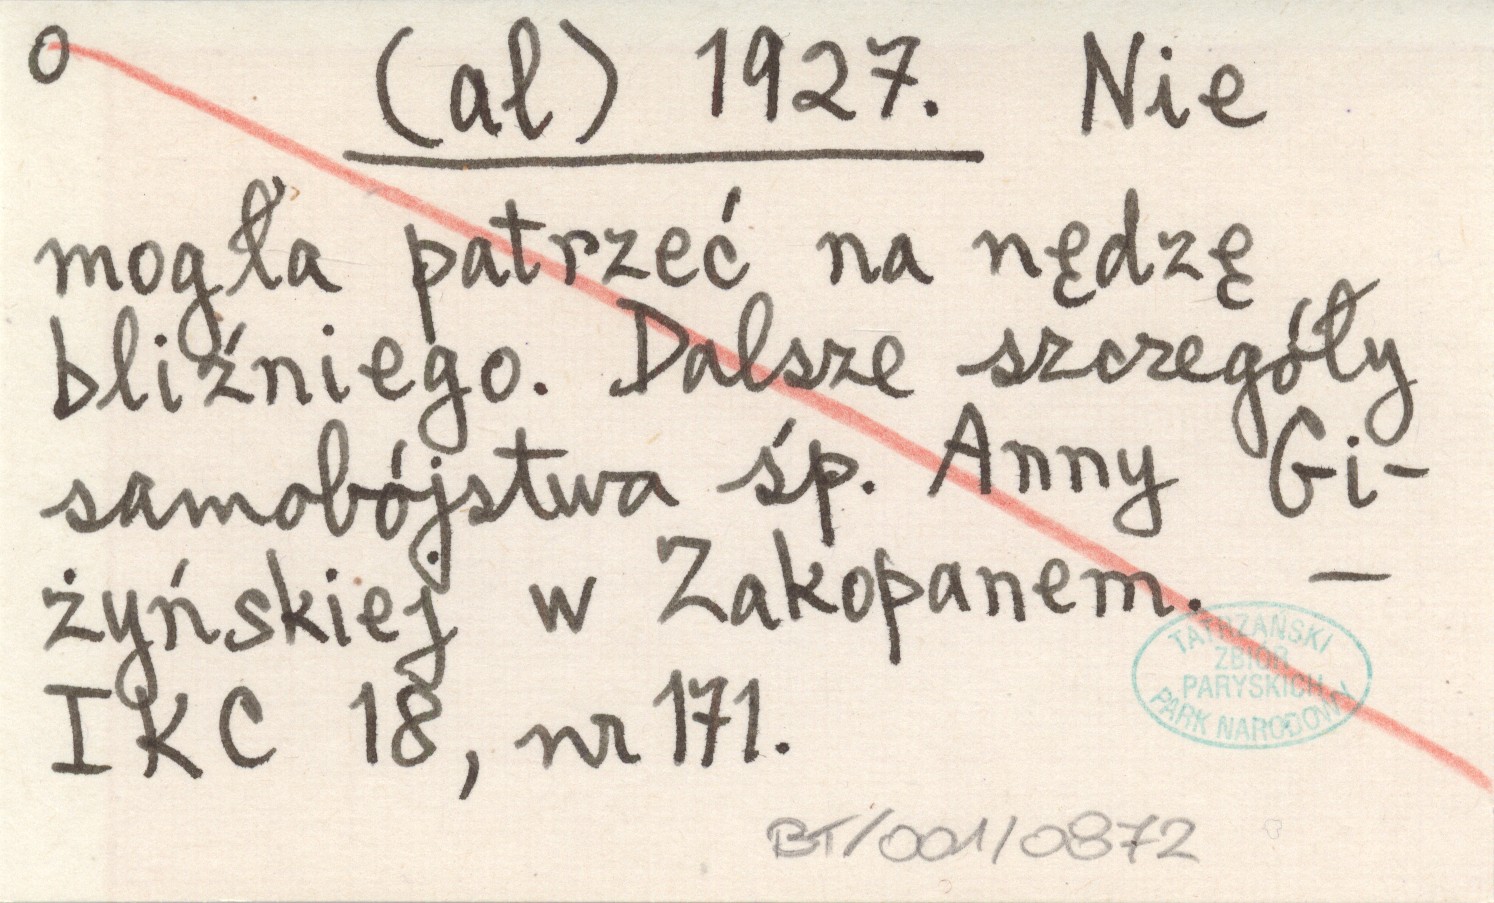 o (al) 1927. Nie
mogła patrzeć na nędzę
bliźniego. Dalsze szczegóły
samobójstwa śp. Anny Gi-
żyńskiej w Zakopanem. —
IKC 18, nr 171.
TATRZAŃSKI
ZBIÓR
PARYSKICH
PARK NARODOWY
BT/001/0872